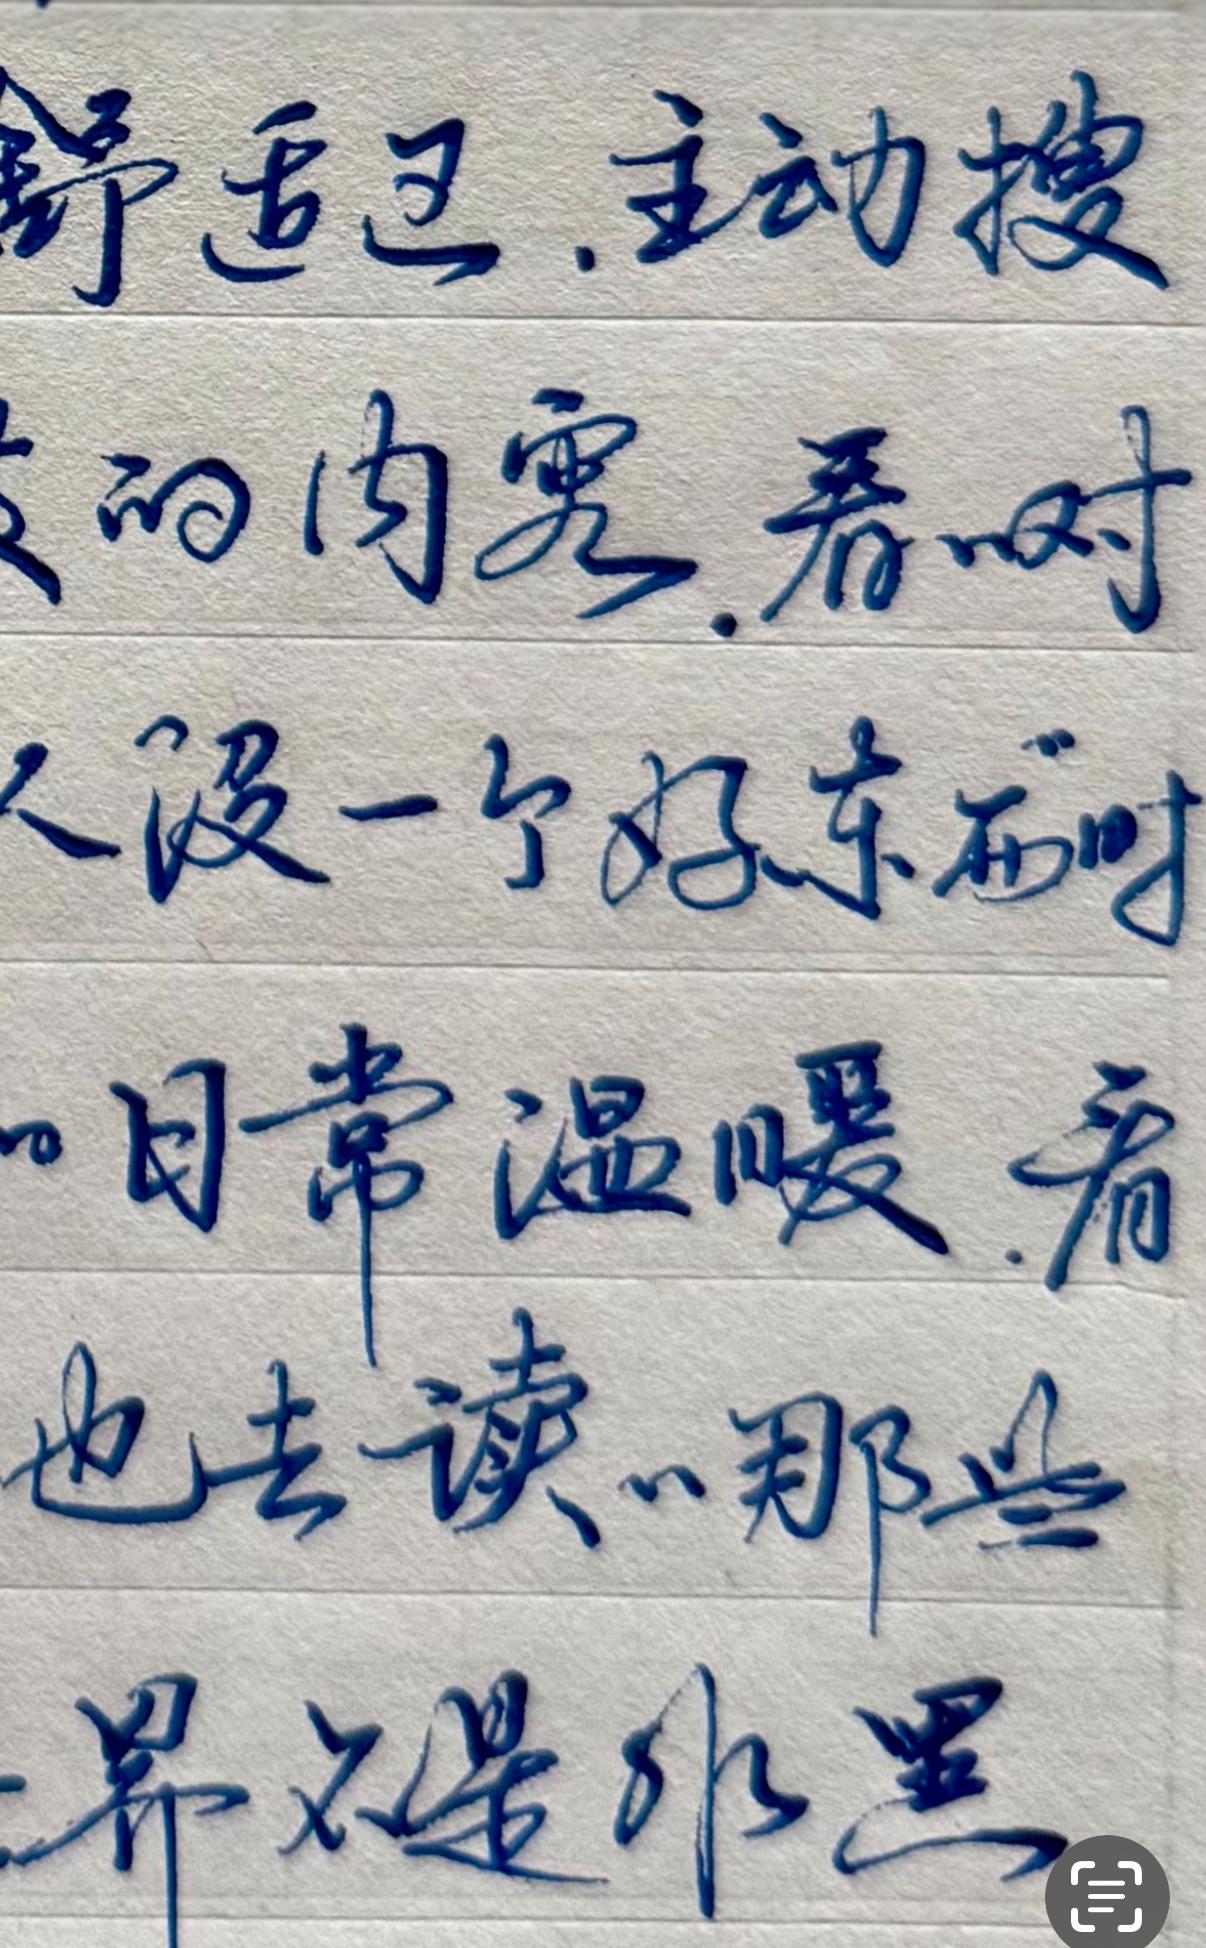 舒适区.主动搜
的内容.看"对
人没一个好东西"时
"日常温暖.看
也去读"那些
界不是非黑